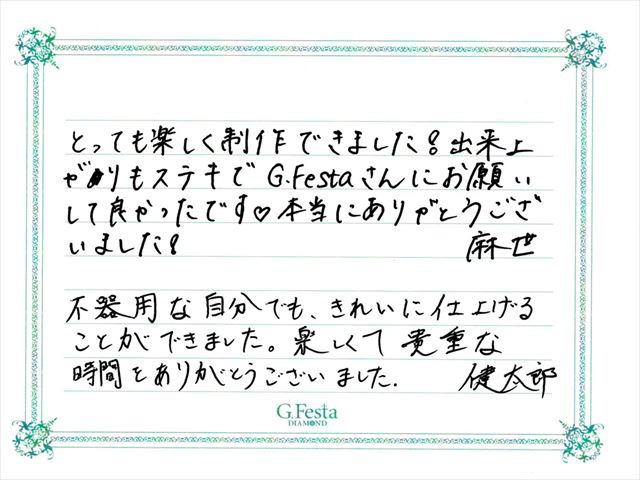 とっても楽しく制作できました!出来上
がりもステキで G.Festaさんにお願い
して良かったです♡本当にありがとうござ
いました!  麻世
不器用な自分でも、きれいに仕上げる
ことができました。楽しくて貴重な
時間をありがとうございました.  健太郎
G.Festa
DIAMOND